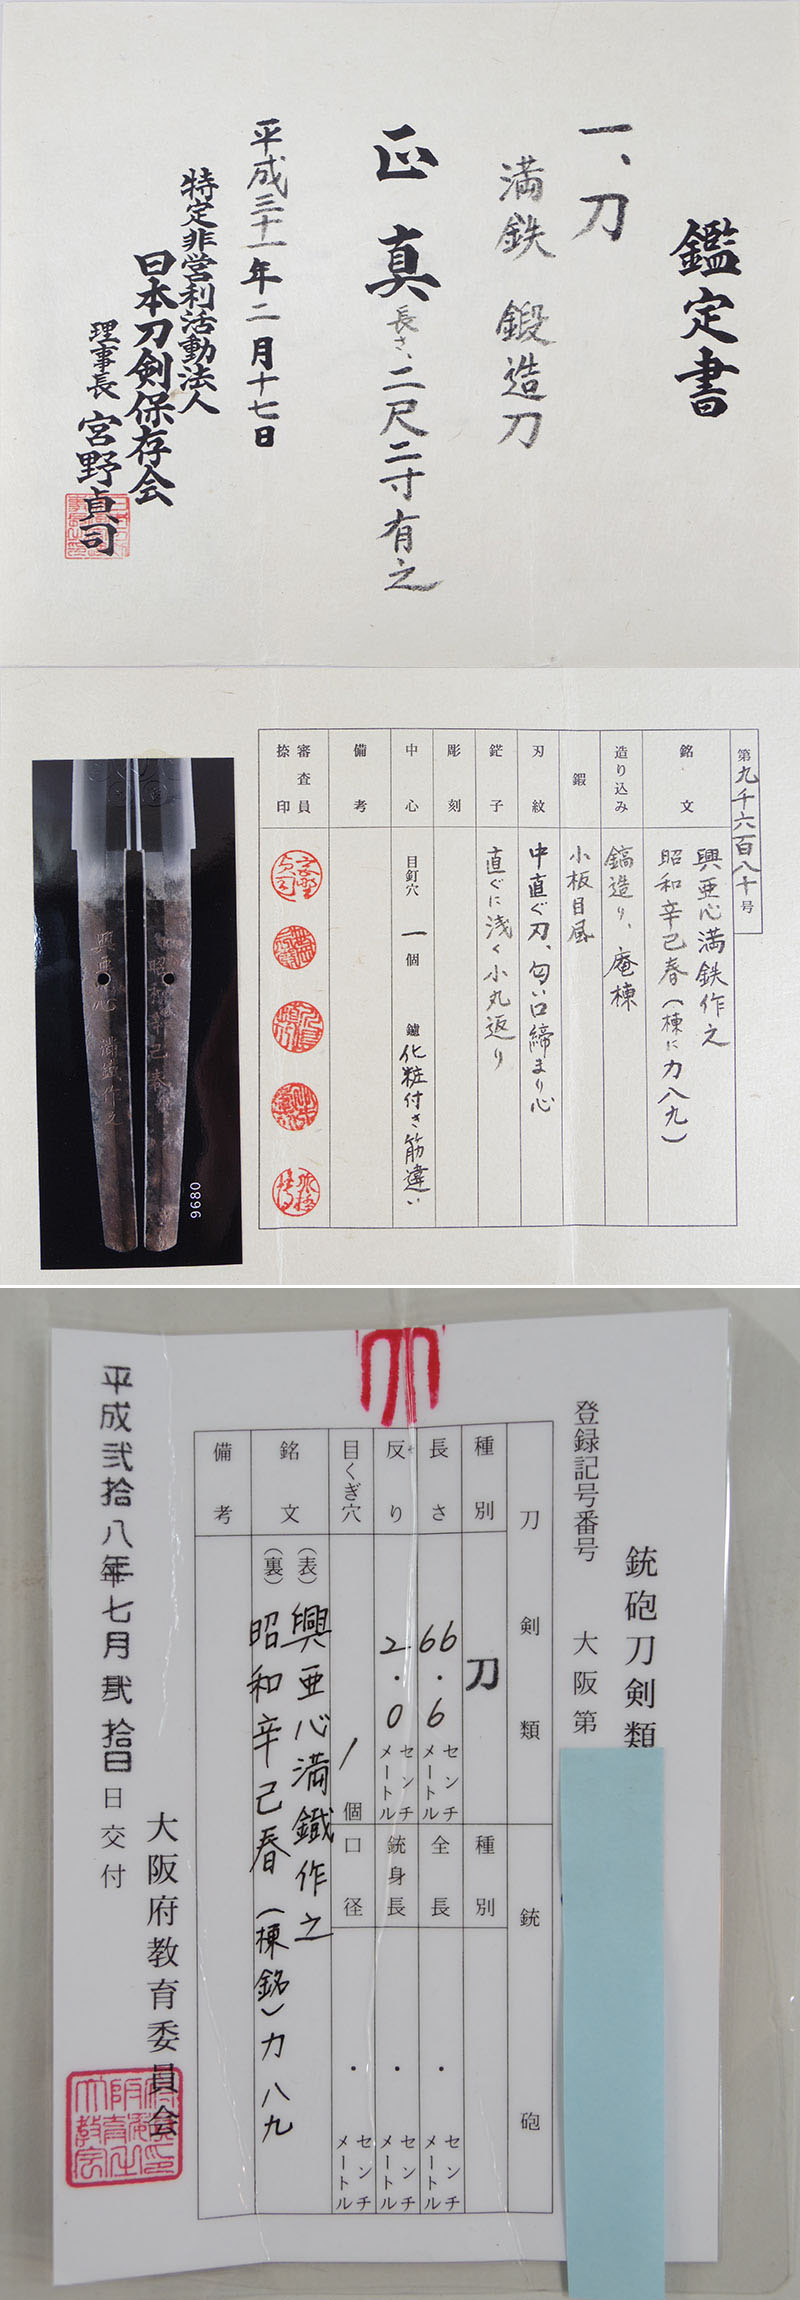 鑑定書
一、刀
満鉄 鍛造刀
正真 長さ、二尺二寸有之
平成三十一年二月十七日
特定非営利活動法人
日本刀剣保存会
理事長 宮野貞司
第九千六百八十号
銘文 興亜心満鉄作之
昭和辛己春(棟に力八九)
造り込み 鎬造り、庵棟
鍜 小板目風
刃紋 中直ぐ刃、匂い口締まり心
鋩子 直ぐに浅く小丸返り
彫刻
中心 目釘穴 一個 鑢 化粧付き筋違い
備考
審査員
捺印
興亜心満鉄作之
昭和辛己春
9680
銃砲刀剣類
登録記号番号 大阪第
刀剣類 銃砲
種別 刀 種別
長さ 66.6センチメートル 全長 ・センチメートル
反り 2.0センチメートル 銃身長 ・センチメートル
目くぎ穴 1個 口径 ・センチメートル
銘文 (表)興亜心満鐵作之
(裏)昭和辛己春(棟銘)力八九
備考
大阪府教育委員会
平成弐拾八年七月弐拾日交付